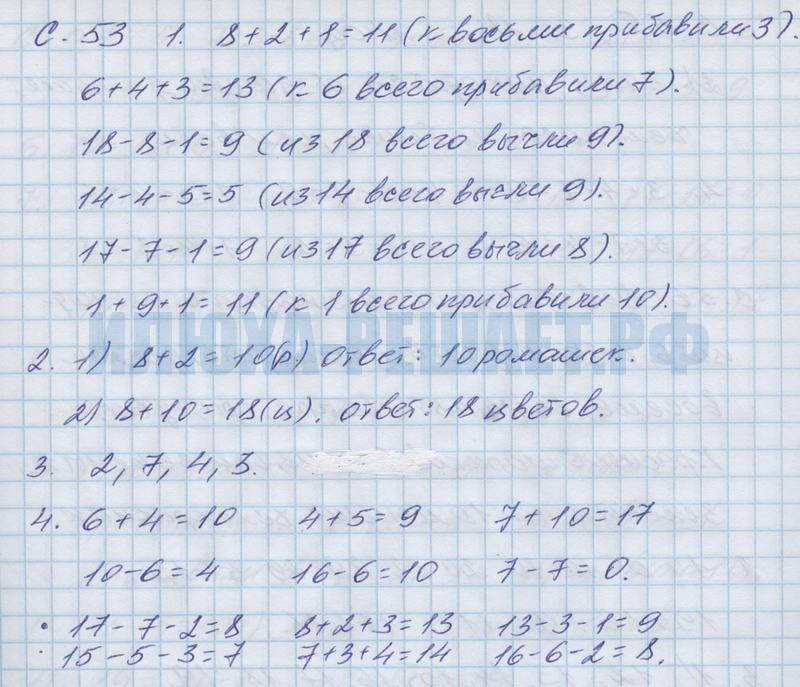 с. 53 1. 8+2+1=11 (к восьми прибавили 3).
6+4+3=13 (к 6 всего прибавили 7).
18-8-1=9 (из 18 всего вычли 9).
14-4-5=5 (из 14 всего высли 9).
17-7-1=9 (из 17 всего вычли 8).
1+9+1=11 (к 1 всего прибавили 10).
ИЛЮХА-РЕШАЕТ.РФ
2. 1) 8+2=10(р) ответ: 10 ромашек.
2) 8+10=18(ц). ответ: 18 цветов.
3. 2, 7, 4, 3.
4. 6+4=10 4+5=9 7+10=17
10-6=4 16-6=10 7-7=0.
• 17-7-2=8 8+2+3=13 13-3-1=9
15-5-3=7 7+3+4=14 16-6-2=8.